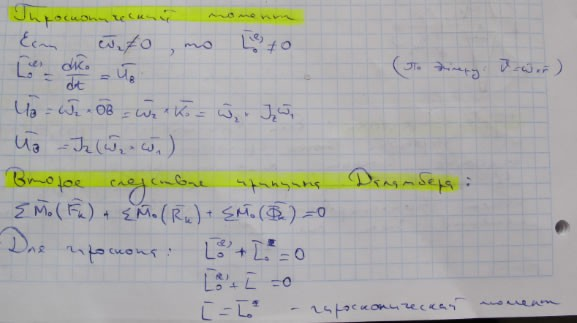 Гироскопический момент
Если ω̄₂≠0, то L̄₀⁽ᵉ⁾≠0
L̄₀⁽ᵉ⁾ = dK̄₀/dt = Ū_B (По Эйлеру: V̄=ω̄×r̄)
Ū_B = ω̄₂ × OB̄ = ω̄₂ × K̄₀ = ω̄₂ × J_zω̄₁
Ū_B = J_z(ω̄₂ × ω̄₁)
Второе следствие принципа Даламбера:
ΣM̄₀(F̄ₖ) + ΣM̄₀(R̄ₖ) + ΣM̄₀(Φ̄ₖ) = 0
Для гироскопа: L̄₀⁽ᵉ⁾ + L̄₀ᶲ = 0
L̄₀⁽ᵉ⁾ + L̄ = 0
L̄ = L̄₀ᶲ - гироскопический момент